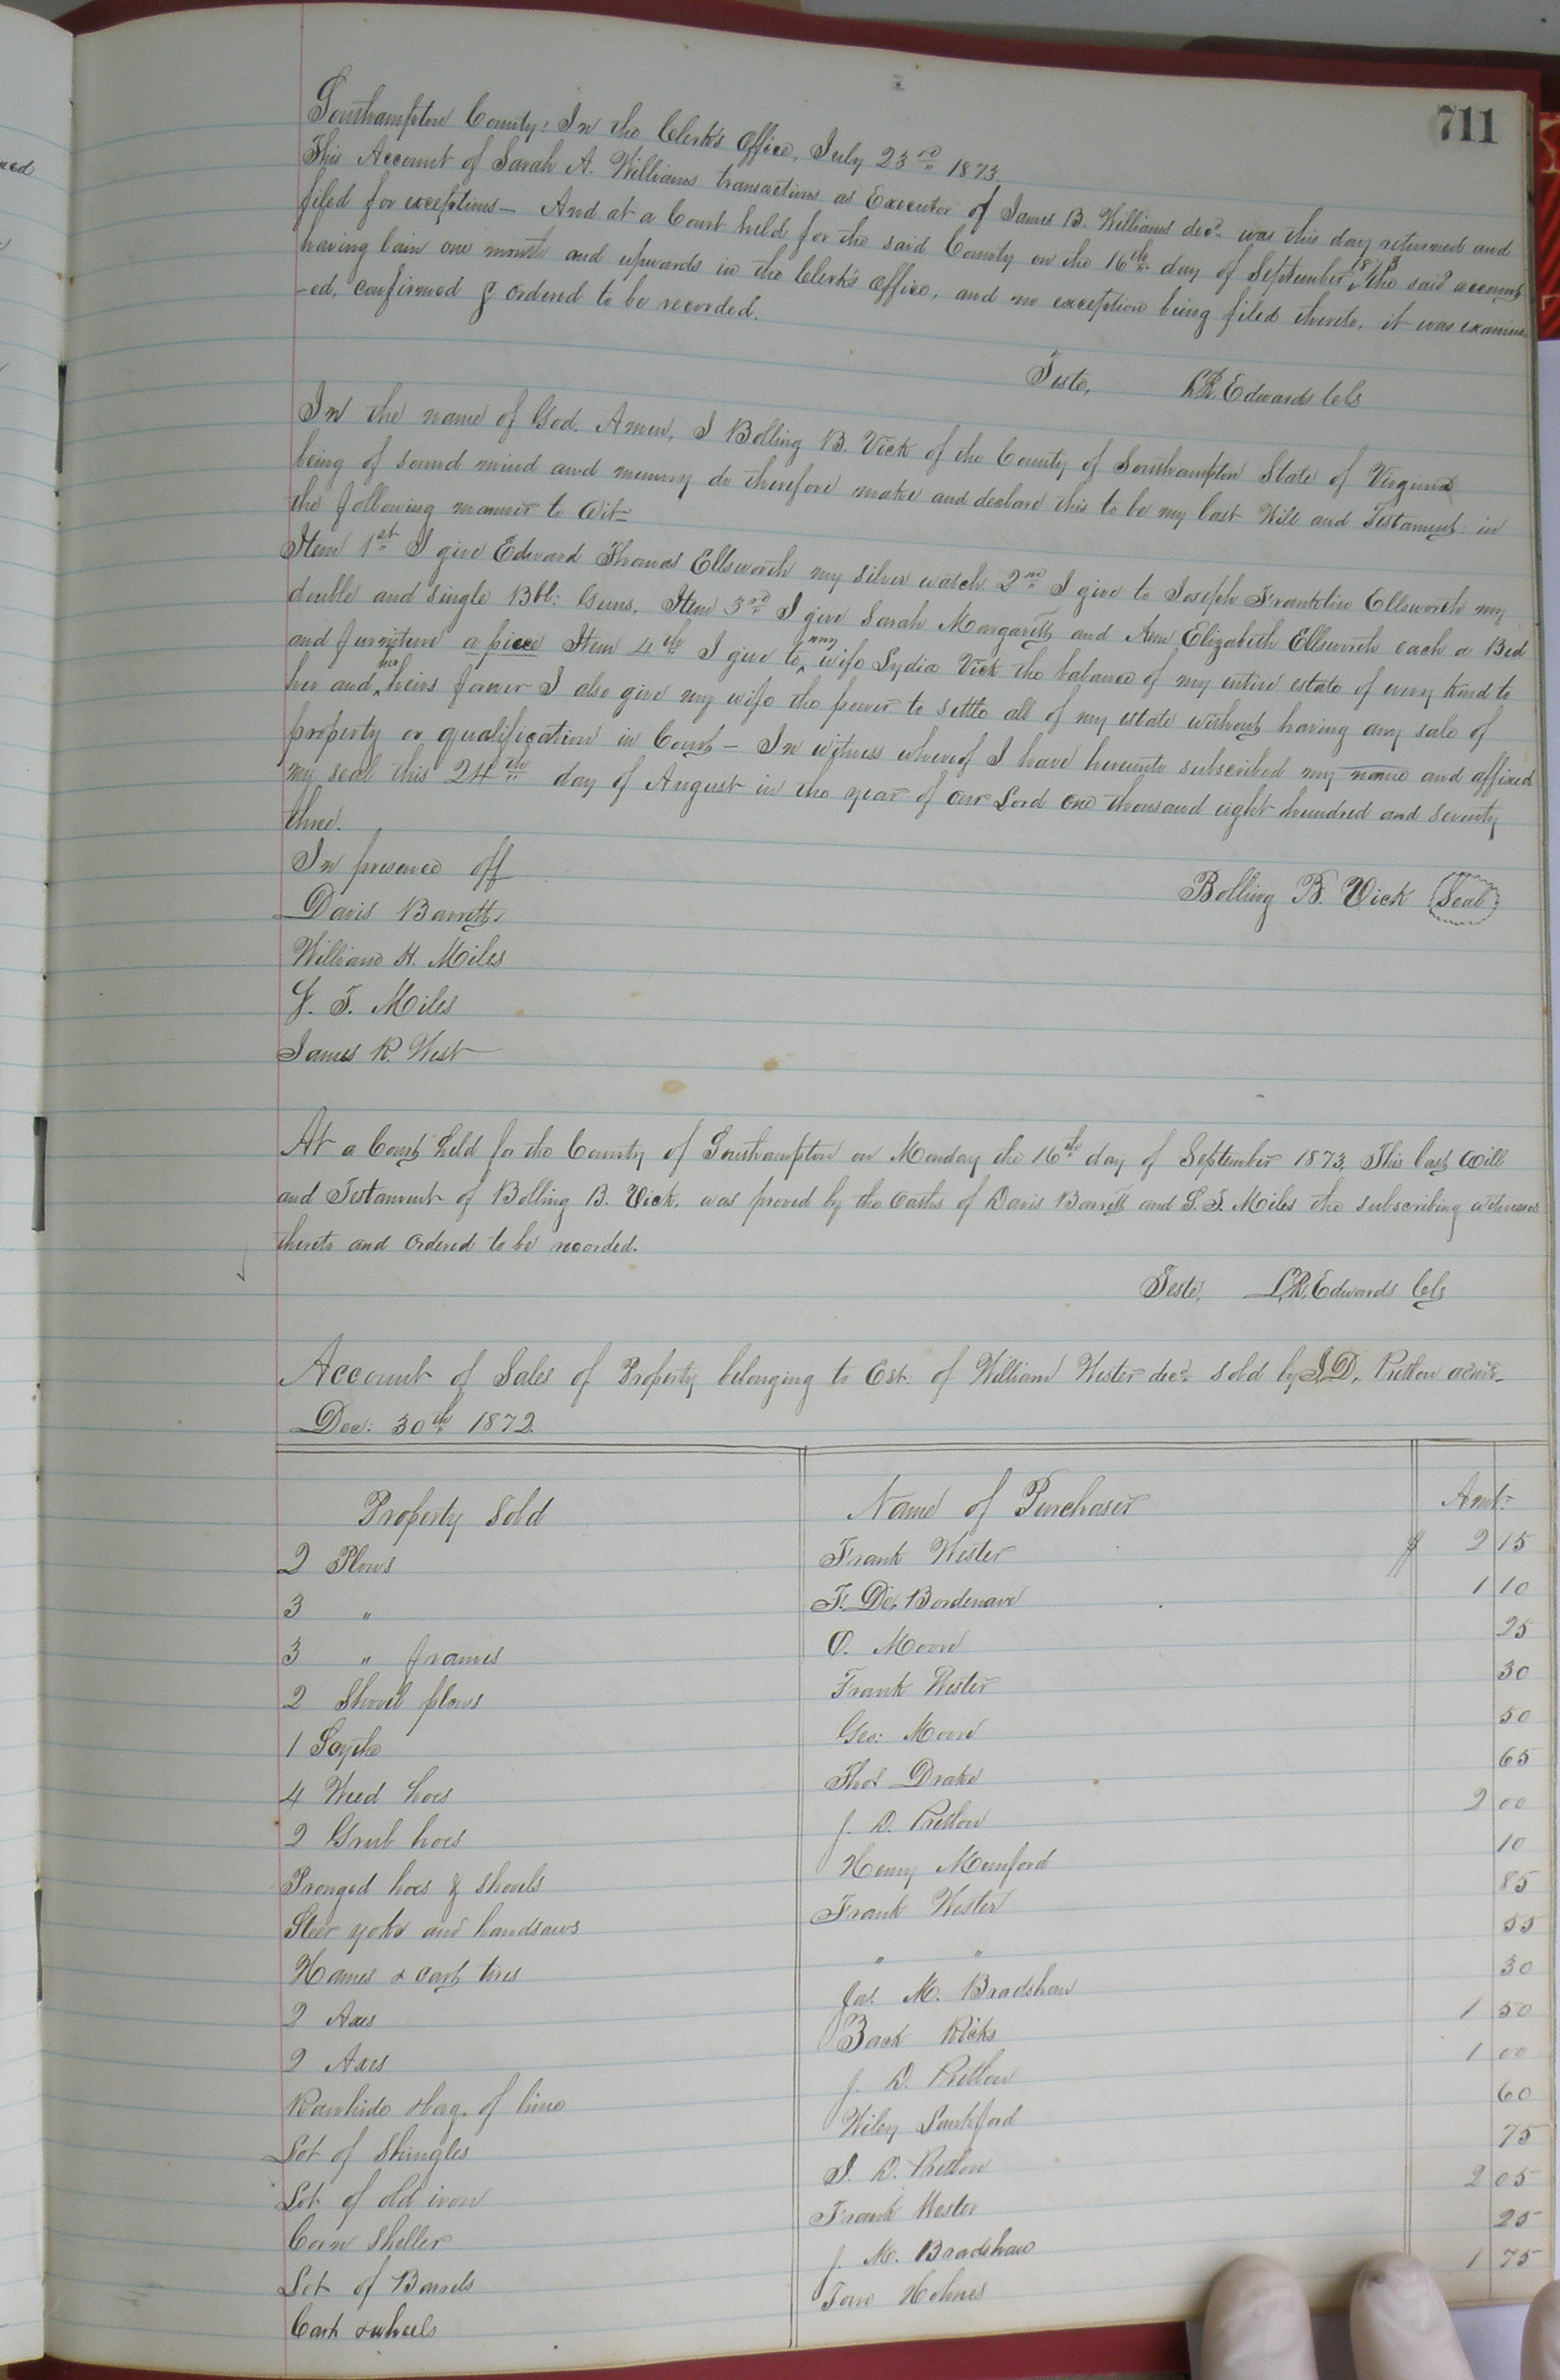 711
Southampton County: In the Clerk's Office, July 23rd 1873
This Account of Sarah A. Williams transactions as Executor of James B. Williams decd. was this day returned and
filed for exceptions - And at a Court held for the said County on the 16th day of September 1873 the said account
having lain one month and upwards in the Clerk's Office, and no exception being filed thereto, it was examin
-ed, confirmed & ordered to be recorded.
Teste, L.R. Edwards Clk
In the name of God. Amen, I Bolling B. Vick of the County of Southampton State of Virginia
being of sound mind and memory do therefore make and declare this to be my last Will and Testament: in
the following manner to Wit-
Item 1st I give Edward Thomas Ellsworth my silver watch 2nd I give to Joseph Franklin Ellsworth my
double and single Bbl: Guns. Item 3rd I give Sarah Margarett and Ann Elizabeth Ellsworth each a Bed
and furniture a piece Item 4th I give to my wife Lydia Vick the balance of my entire estate of every kind to
her and her heirs forever I also give my wife the power to settle all of my estate without having any sale of
property or qualification in Court - In witness whereof I have hereunto subscribed my name and affixed
my seal this 24th day of August in the year of our Lord one thousand eight hundred and seventy
three.
In presence off
Bolling B. Vick Seal
Davis Barrett
William H. Miles
G. T. Miles
James R. West
At a Court held for the County of Southampton on Monday the 16th day of September 1873. This last Will
and Testament of Bolling B. Vick, was proved by the oaths of Davis Barrett and G. T. Miles the subscribing witnesses
thereto and ordered to be recorded.
Teste, L.R. Edwards Clk
Account of Sales of Property belonging to Est. of William Wester decd. sold by J.D. Pretlow admr.
Dec: 30th 1872.
Property Sold Name of Purchaser Amt.
2 Plows Frank Wester $ 2 15
3 " F. De. Bordenave 1 10
3 " frames O. Moore 25
2 Shovel plows Frank Wester 30
1 Scythe Geo: Moore 50
4 Weed hoes Thos Drake 65
2 Grub hoes J. D. Pretlow 2 00
Pronged hoes & shovels Henry Mumford 10
Steer yoke and handsaws Frank Wester 85
Hames & cart tires " " 55
2 Axes Jas. M. Bradshaw 30
2 Axes Zack Ricks 1 50
Rawhide & bag. of lime J. D. Pretlow 1 00
Lot of Shingles Wiley Lankford 60
Lot of old iron J. D. Pretlow 75
Corn Sheller Frank Wester 2 05
Lot of Barrels J. M. Bradshaw 25
Cart & wheels Tom Holmes 1 75